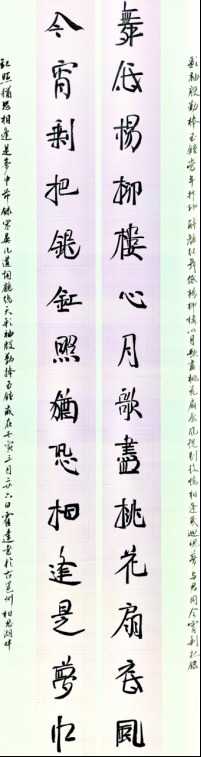 彩袖殷勤捧玉鍾當年拚却醉顏紅舞低楊柳樓心月歌盡桃花扇底風從別後憶相逢幾迴魂夢與君同今宵剩把銀
舞低楊柳樓心月歌盡桃花扇底風
今宵剩把銀釭照猶恐相逢是夢中
釭照猶恐相逢是夢中節錄宋晏几道詞鷓鴣天彩袖殷勤捧玉鍾歲在壬寅三月廿六日霍達書於古邕州相思湖畔